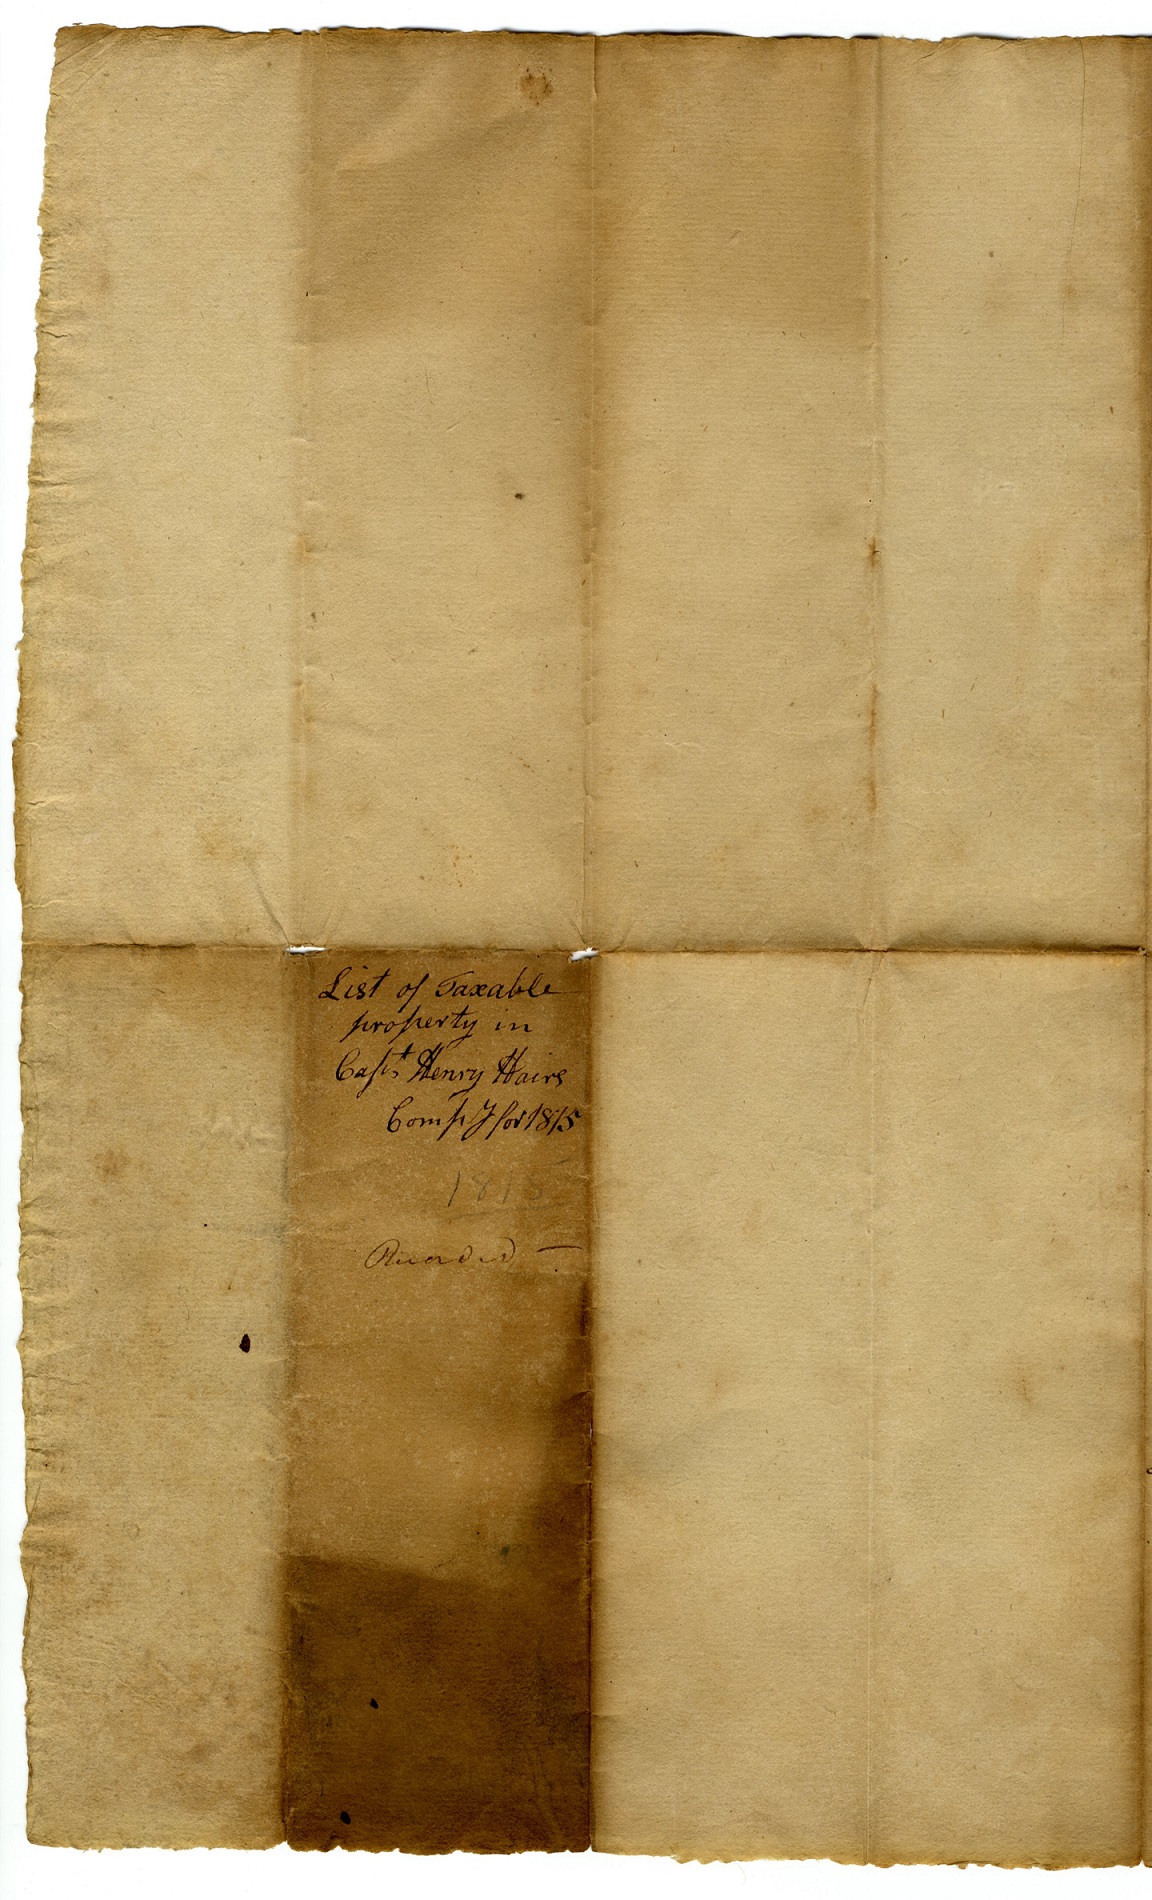 List of Taxable
property in
Capt. Henry Hairs
Compy for 1815
1815
Recorded —